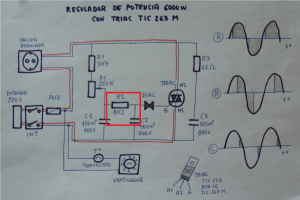 REGULADOR DE POTENCIA 6000W
CON TRIAC TIC 263 M
SALIDA
REGULADA
R1
3K3
P1
220K
R2
8K2
DIAC
TRIAC
A2
G
A1
R3
C1
100nF
400V
C2
100nF
400V
C3
100nF
400V
ENTRADA
220V
FUSE
INT
Tº
TERMOSTATO
M
VENTILADOR
A
B
C
t
t
t
TRIAC
TIC 226
BTA 16
TIC 263 M
A1 A2 G